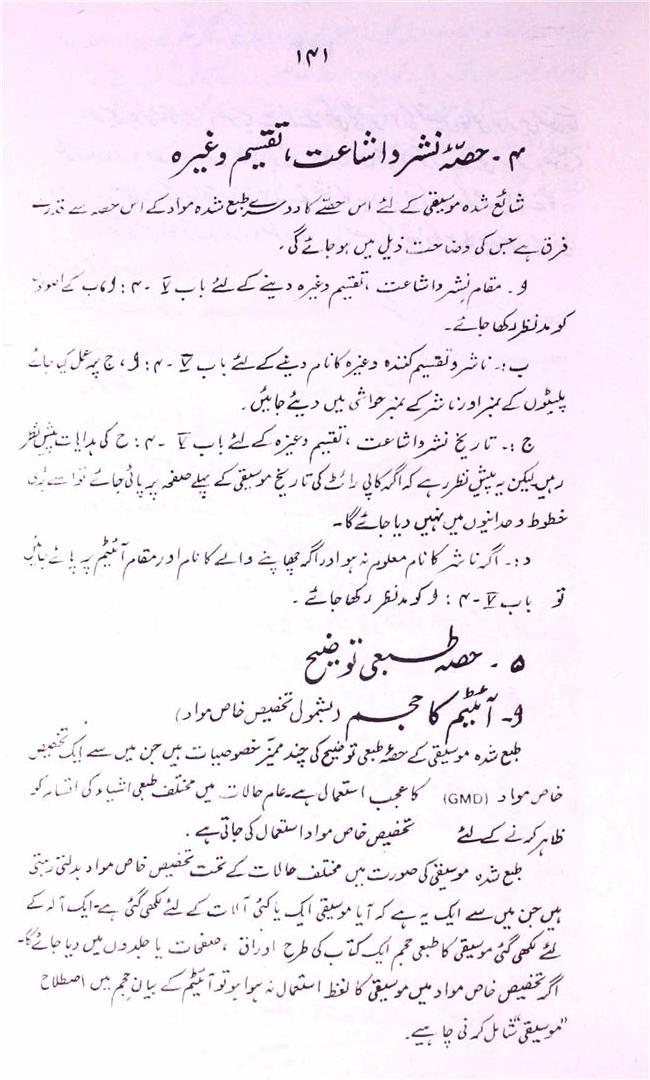 ۱۴۱
۴ - حصۂ نشر و اشاعت ، تقسیم وغیرہ
شائع شدہ موسیقی کے لئے اس حصّے کا دوسرے طبع شدہ مواد کے اس حصہ سے قدرے
فرق ہے جس کی وضاحت ذیل میں ہو جائے گی۔
و۔ مقام نشر و اشاعت ، تقسیم وغیرہ دینے کے لئے باب V -۴: و، ب کے اصول
کو مدنظر رکھا جائے۔
ب :۔ ناشر و تقسیم کنندہ وغیرہ کا نام دینے کے لئے باب V -۴: و، ج پر عمل کیا جائے
پلیٹوں کے نمبر اور ناشر کے نمبر حواشی میں دیئے جائیں۔
ج :۔ تاریخ نشر و اشاعت ، تقسیم وغیرہ کے لئے باب V -۴: ح کی ہدایات پیش نظر
رہیں لیکن یہ پیش نظر رہے کہ اگر کاپی رائٹ کی تاریخ موسیقی کے پہلے صفحہ پر پائی جائے تو اسے
خطوط وحدانیوں میں نہیں دیا جائے گا۔
د :۔ اگر ناشر کا نام معلوم نہ ہو اور اگر چھاپنے والے کا نام اور مقام آئیٹم پر پائے جائیں
تو باب V -۴: و کو مدنظر رکھا جائے ۔
۵ - حصہ طبعی توضیح
و- آئیٹم کا حجم (بشمول تخصیص خاص مواد)
طبع شدہ موسیقی کے حصۂ طبعی توضیح کی چند ممیّز خصوصیات ہیں جن میں سے ایک تخصیص
خاص مواد (GMD) کا عجب استعمال ہے۔ عام حالات میں مختلف طبعی اشیاء کی اقسام کو
ظاہر کرنے کے لئے تخصیص خاص مواد استعمال کی جاتی ہے ۔
طبع شدہ موسیقی کی صورت میں مختلف حالات کے تحت تخصیص خاص مواد بدلتی رہتی
ہیں جن میں سے ایک یہ ہے کہ آیا موسیقی ایک یا کئی آلات کے لئے لکھی گئی ہے۔ ایک آلہ کے
لئے لکھی گئی موسیقی کا طبعی حجم ایک کتاب کی طرح اوراق ، صفحات یا جلدوں میں دیا جائے گا۔
اگر تخصیص خاص مواد میں موسیقی کا لفظ استعمال نہ ہوا ہو تو آئیٹم کے بیان حجم میں اصطلاح
”موسیقی“ شامل کرنی چاہیے۔